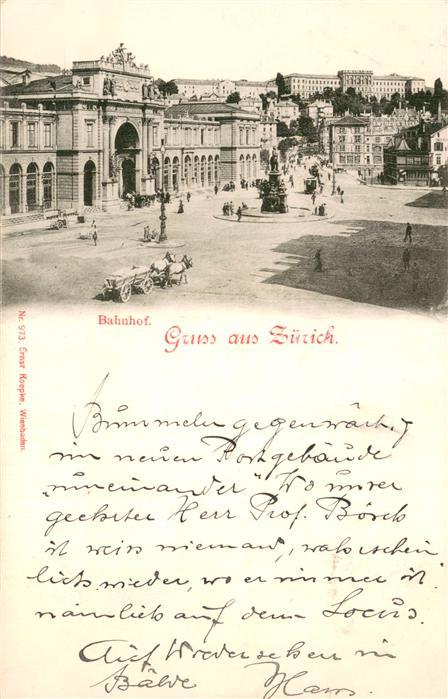 Bahnhof.
Gruss aus Zürich.
Nr. 973. Ernst Koepke, Wiesbaden.
Bummeln gegenwärtig
im neuen Postgebäude
„umeinander" Wo unser
geehrter Herr Prof. Börsch
ist weiss niemand, wahrschein
lich wieder, wo er immer ist
nämlich auf dem Locus.
Auf Wiedersehen in
Bälde Hans